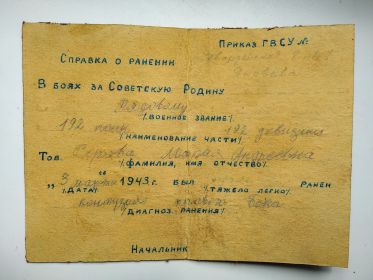 Приказ ГВСУ №
Справка о ранении
В боях за Советскую Родину
Рядовому
/военное звание/
192 полк 192 дивизии
/наименование части/
Тов.
/фамилия, имя отчество/
„3 марта“ 1943 г. был ранен
/дата/ /тяжело легко/
контузия бока
/диагноз ранения/
Начальник